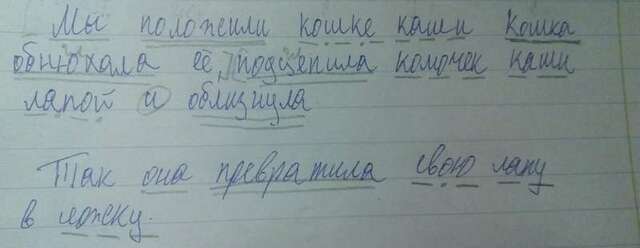 Мы положили кошке каши Кошка
обнюхала её, подцепила комочек каши
лапой и облизнула
Так она превратила свою лапу
в ложку.